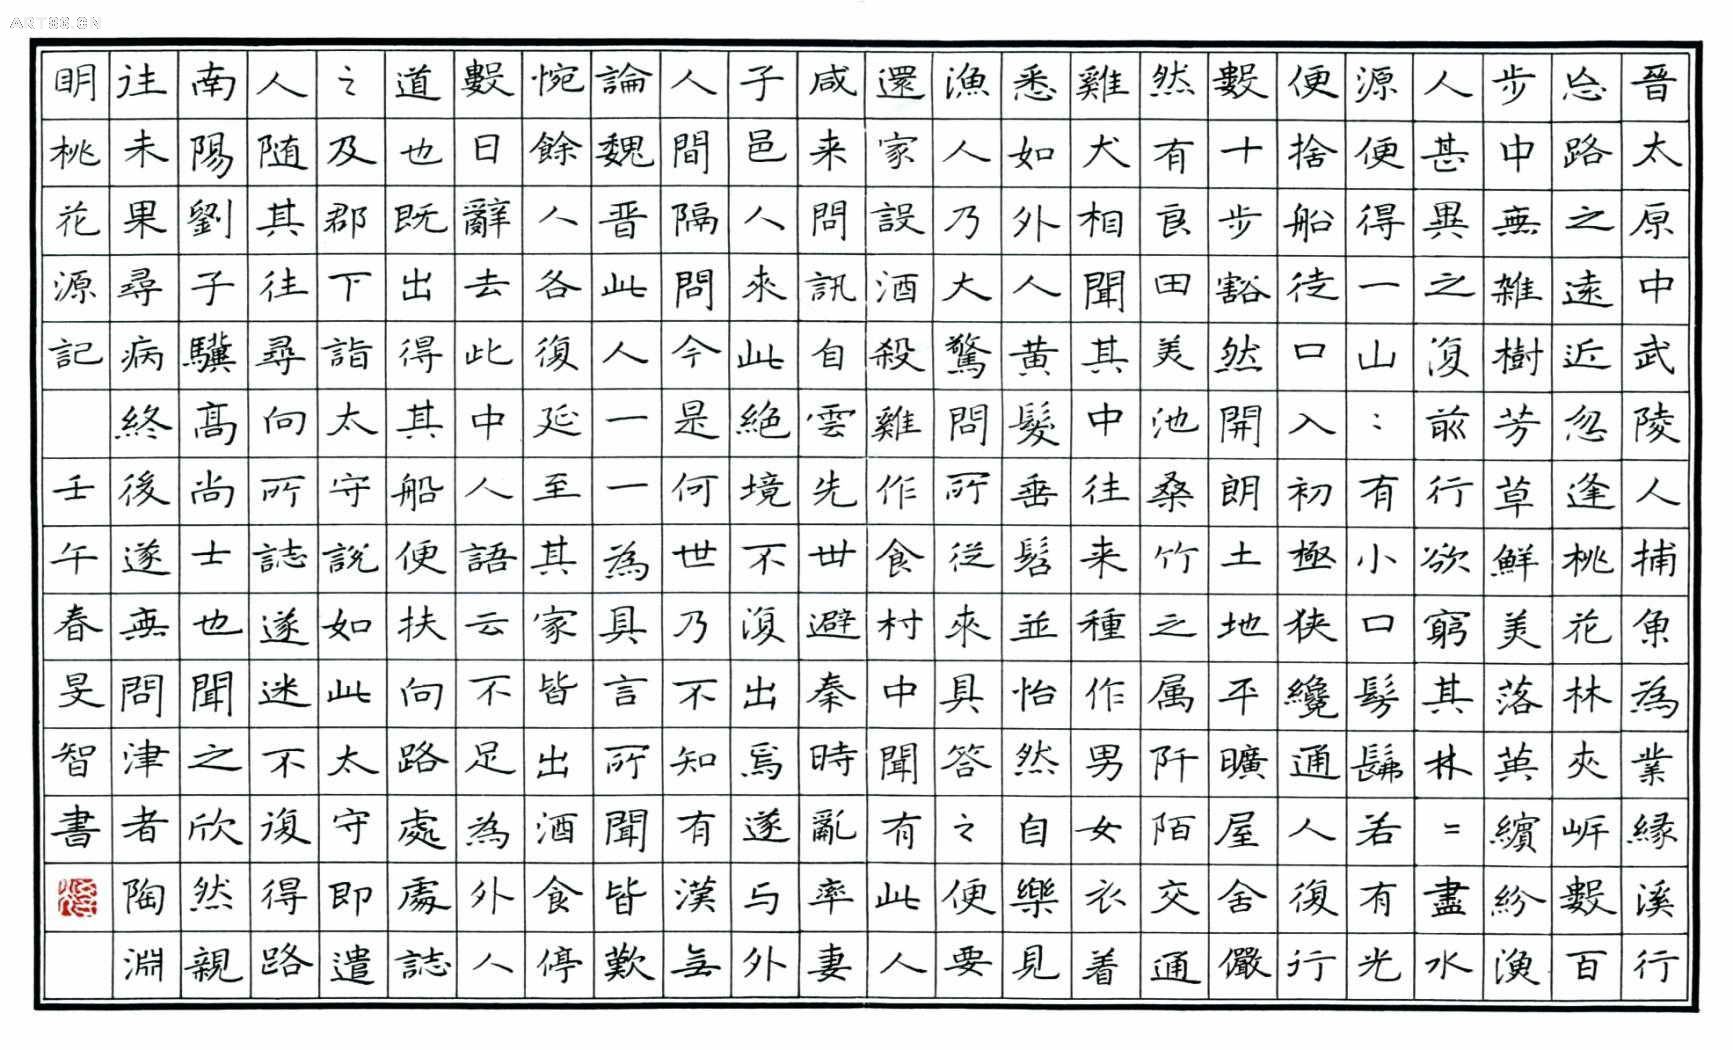 晉太原中武陵人捕魚為業緣溪行
忘路之遠近忽逢桃花林夾岸數百
步中無雜樹芳草鮮美落英繽紛漁
人甚異之復前行欲窮其林=盡水
源便得一山:有小口髣髴若有光
便捨船從口入初極狹纔通人復行
數十步豁然開朗土地平曠屋舍儼
然有良田美池桑竹之属阡陌交通
雞犬相聞其中往来種作男女衣着
悉如外人黄髮垂髫並怡然自樂見
漁人乃大驚問所從來具答之便要
還家設酒殺雞作食村中聞有此人
咸来問訊自雲先世避秦時亂率妻
子邑人來此絕境不復出焉遂与外
人間隔問今是何世乃不知有漢無
論魏晋此人一一為具言所聞皆歎
惋餘人各復延至其家皆出酒食停
數日辭去此中人語云不足為外人
道也既出得其船便扶向路處處誌
之及郡下詣太守說如此太守即遣
人随其往尋向所誌遂迷不復得路
南陽劉子驥高尚士也聞之欣然親
往未果尋病終後遂無問津者陶淵
明桃花源記 壬午春旻智書